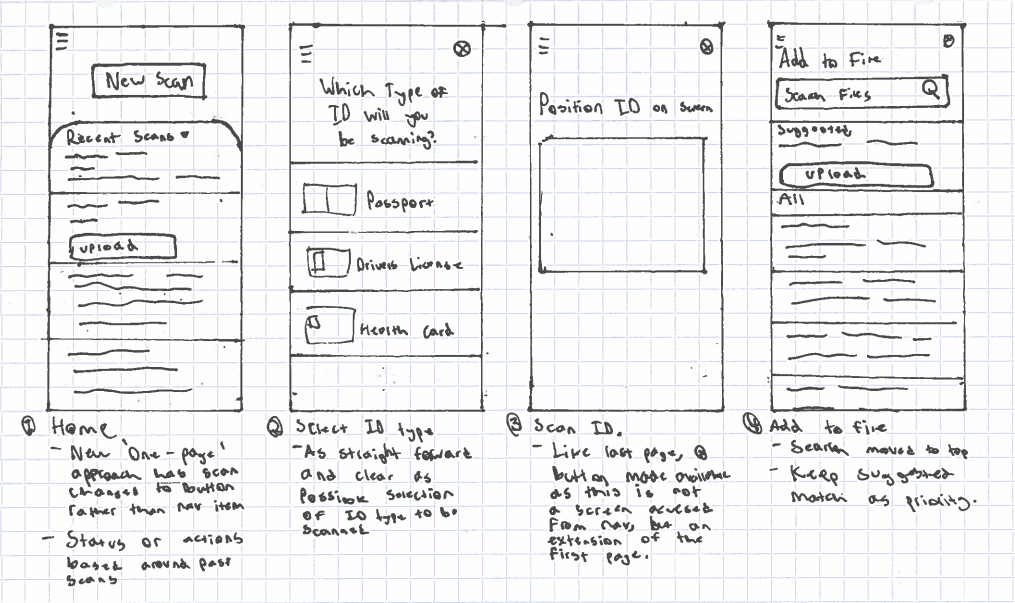 New Scan
Recent Scans
upload
① Home
- New 'One-page'
approach has scan
changed to button
rather than nav item
- Status or actions
based around past
scans
Which Type of
ID will you
be scanning?
Passport
Drivers License
Health Card
② Select ID type
- As straight forward
and clear as
possible selection
of ID type to be
scanned
Position ID on screen
③ Scan ID.
- Like last page, ⊗
button made available
as this is not
a screen accessed
from nav, but an
extension of the
first page.
Add to File
Search Files
Suggested
upload
All
④ Add to file
- Search moved to top
- Keep suggested
match as priority.